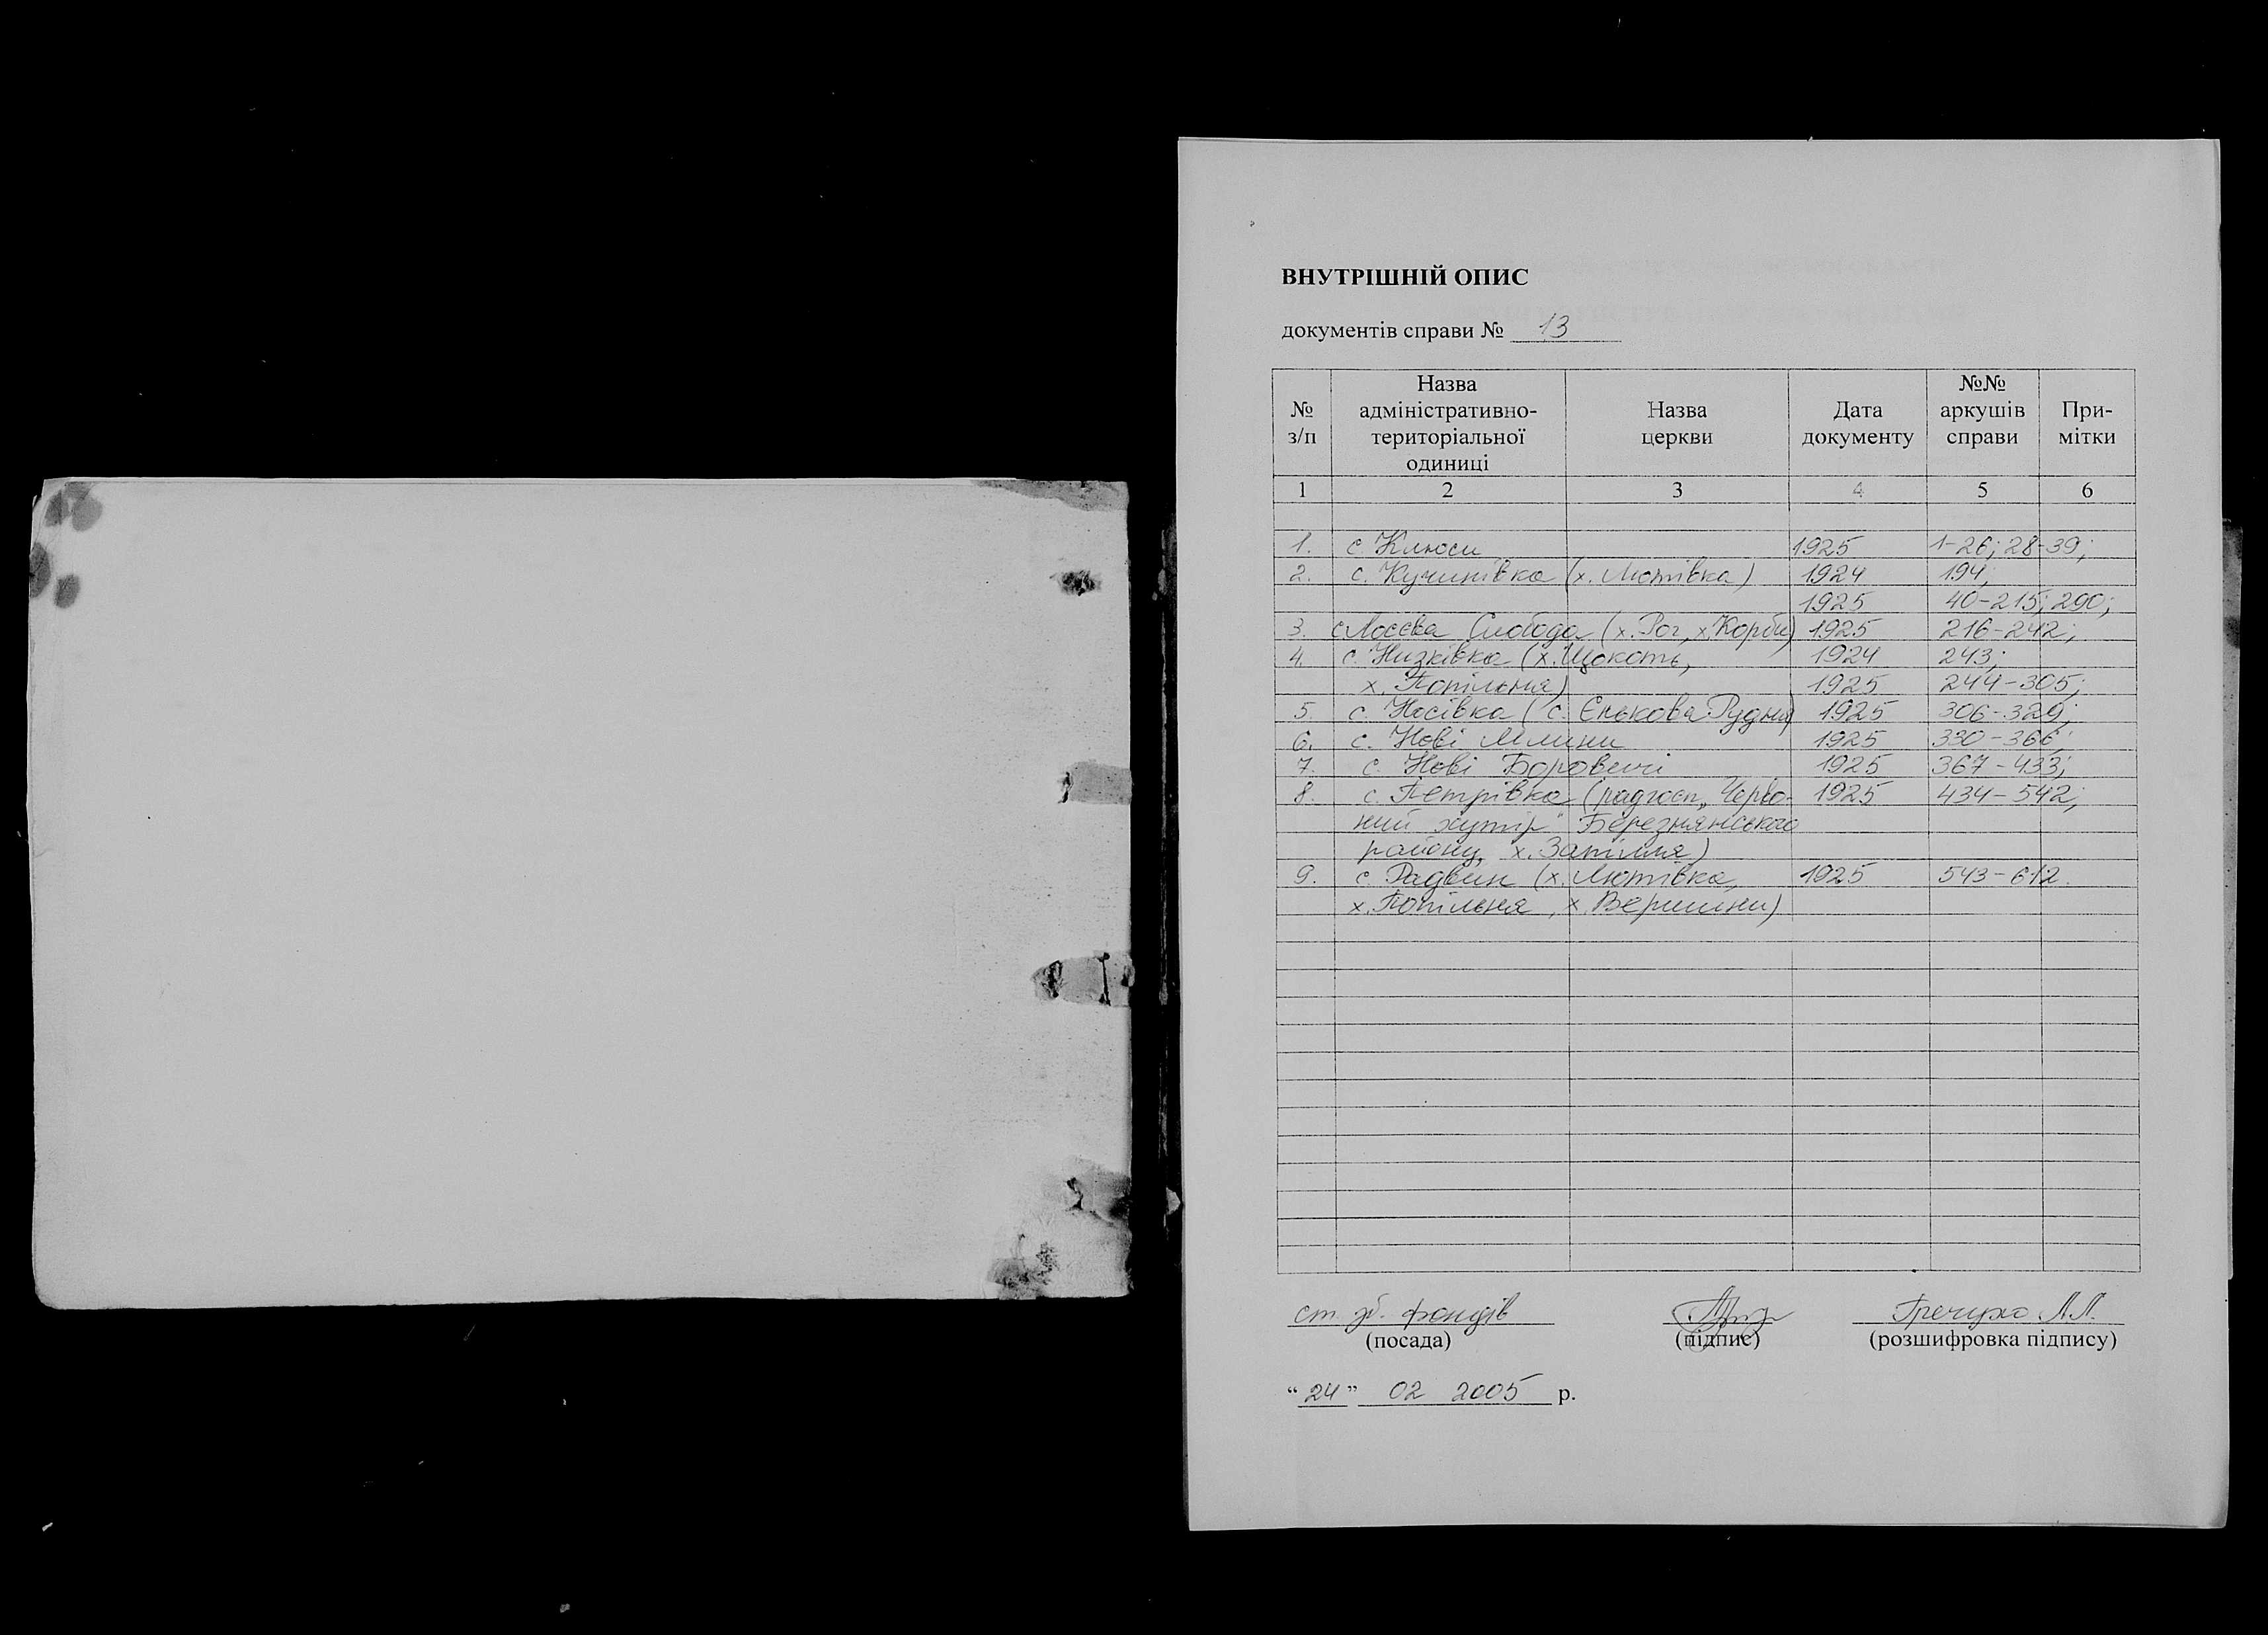 ВНУТРІШНІЙ ОПИС
документів справи № 13
№ з/п | Назва адміністративно-територіальної одиниці | Назва церкви | Дата документу | №№ аркушів справи | При-мітки
1 | 2 | 3 | 4 | 5 | 6
1. с. Клюси 1925 1-26; 28-39;
2. с. Кучинівка (х. Лютівка) 1924 194;
1925 40-215; 290;
3. с Лосєва Слобода (х. Рог, х. Корби) 1925 216-242;
4. с. Низківка (х. Щокоть, 1924 243;
х. Попільня) 1925 244-305;
5. с. Носівка (с. Єнькова Рудня) 1925 306-329;
6. с. Нові Млини 1925 330-366;
7. с. Нові Боровичі 1925 367-433;
8. с. Петрівка (радгосп „Черво- 1925 434-542;
ний хутір" Березнянського
району, х. Запілля)
9. с. Радвин (х. Лютівка, 1925 543-612.
х. Попільня, х. Вершини)
ст. зб. фондів Гречухо Л.П.
(посада) (підпис) (розшифровка підпису)
“24” 02 2005 р.